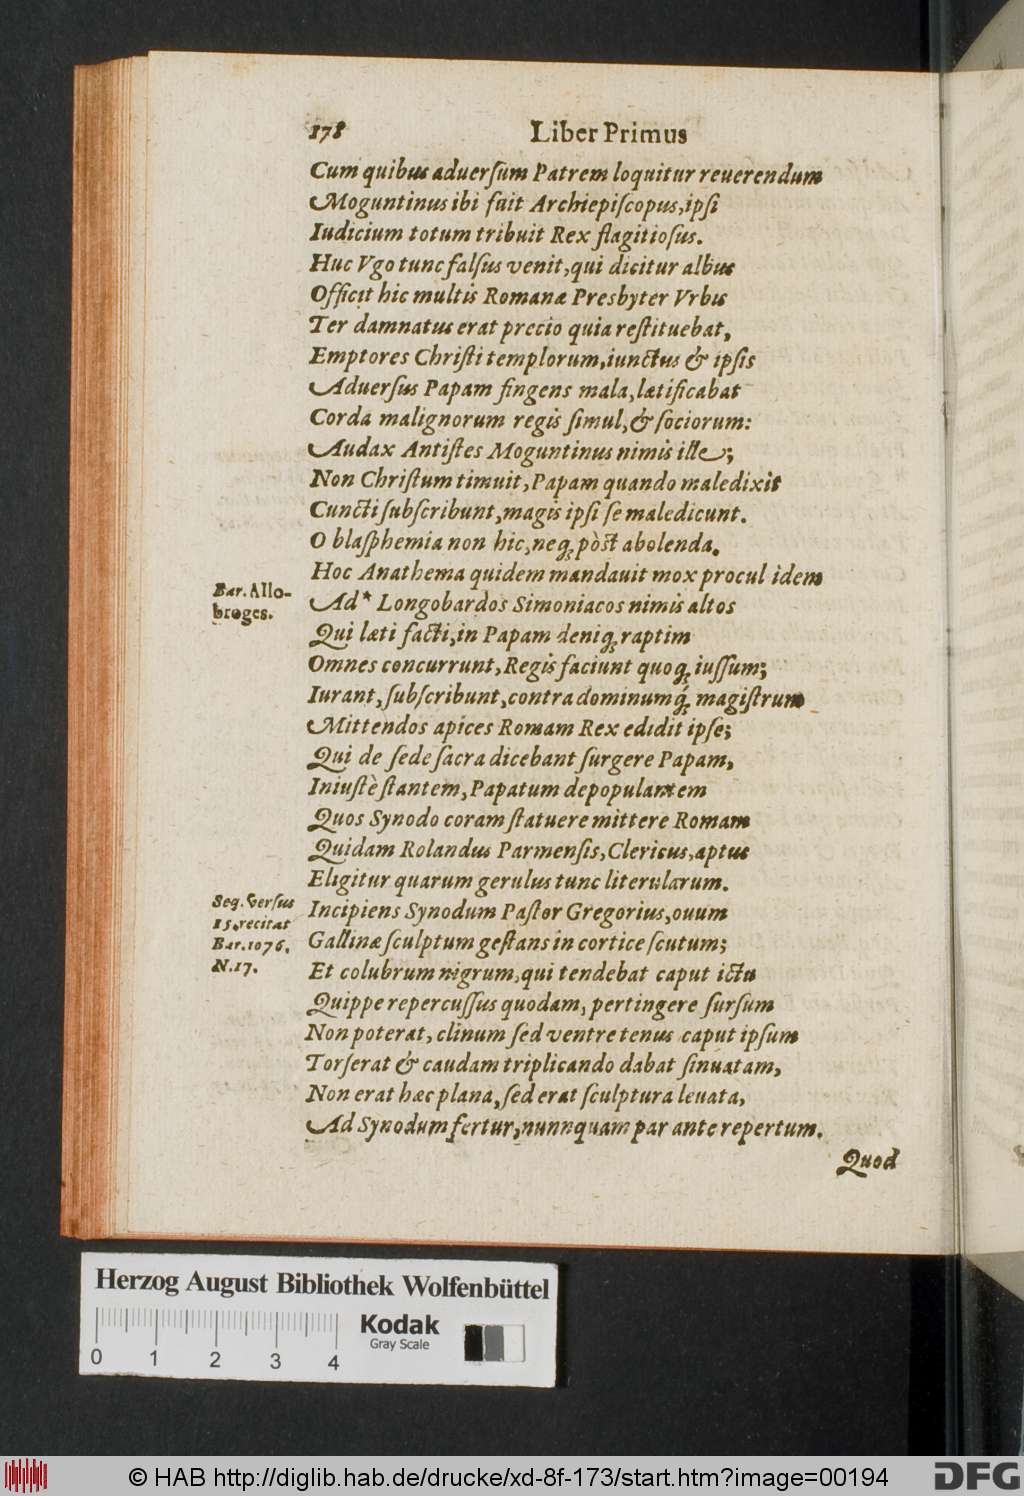 178 Liber Primus
Cum quibus aduerſum Patrem loquitur reuerendum
Moguntinus ibi fuit Archiepiſcopus, ipſi
Iudicium totum tribuit Rex flagitioſus.
Huc Vgo tunc falſus venit, qui dicitur albus
Officit hic multis Romanæ Presbyter Vrbis
Ter damnatus erat precio quia reſtituebat,
Emptores Chriſti templorum, iunctus & ipſis
Aduerſus Papam fingens mala, lætificabat
Corda malignorum regis ſimul, & ſociorum:
Audax Antiſtes Moguntinus nimis ille;
Non Chriſtum timuit, Papam quando maledixit
Cuncti ſubſcribunt, magis ipſi ſe maledicunt.
O blaſphemia non hic, neq; pòst abolenda.
Hoc Anathema quidem mandauit mox procul idem
Bar. Allo-
broges.
Ad* Longobardos Simoniacos nimis altos
Qui læti facti, in Papam deniq; raptim
Omnes concurrunt, Regis faciunt quoq; iuſſum;
Iurant, ſubſcribunt, contra dominumq́; magiſtrum
Mittendos apices Romam Rex edidit ipſe;
Qui de ſede ſacra dicebant ſurgere Papam,
Iniuſtè ſtantem, Papatum depopulantem
Quos Synodo coram ſtatuere mittere Romam
Quidam Rolandus Parmenſis, Clericus, aptus
Eligitur quarum gerulus tunc literularum.
Seq. verſus
15. recitat
Bar. 1076.
N. 17.
Incipiens Synodum Paſtor Gregorius, ouum
Gallinæ ſculptum geſtans in cortice ſcutum;
Et colubrum nigrum, qui tendebat caput ictu
Quippe repercuſſus quodam, pertingere ſurſum
Non poterat, clinum ſed ventre tenus caput ipſum
Torſerat & caudam triplicando dabat ſinuatam,
Non erat hæc plana, ſed erat ſculptura leuata,
Ad Synodum fertur, nunnquam par ante repertum.
Quod
Herzog August Bibliothek Wolfenbüttel
0 1 2 3 4
Kodak
Gray Scale
© HAB http://diglib.hab.de/drucke/xd-8f-173/start.htm?image=00194
DFG